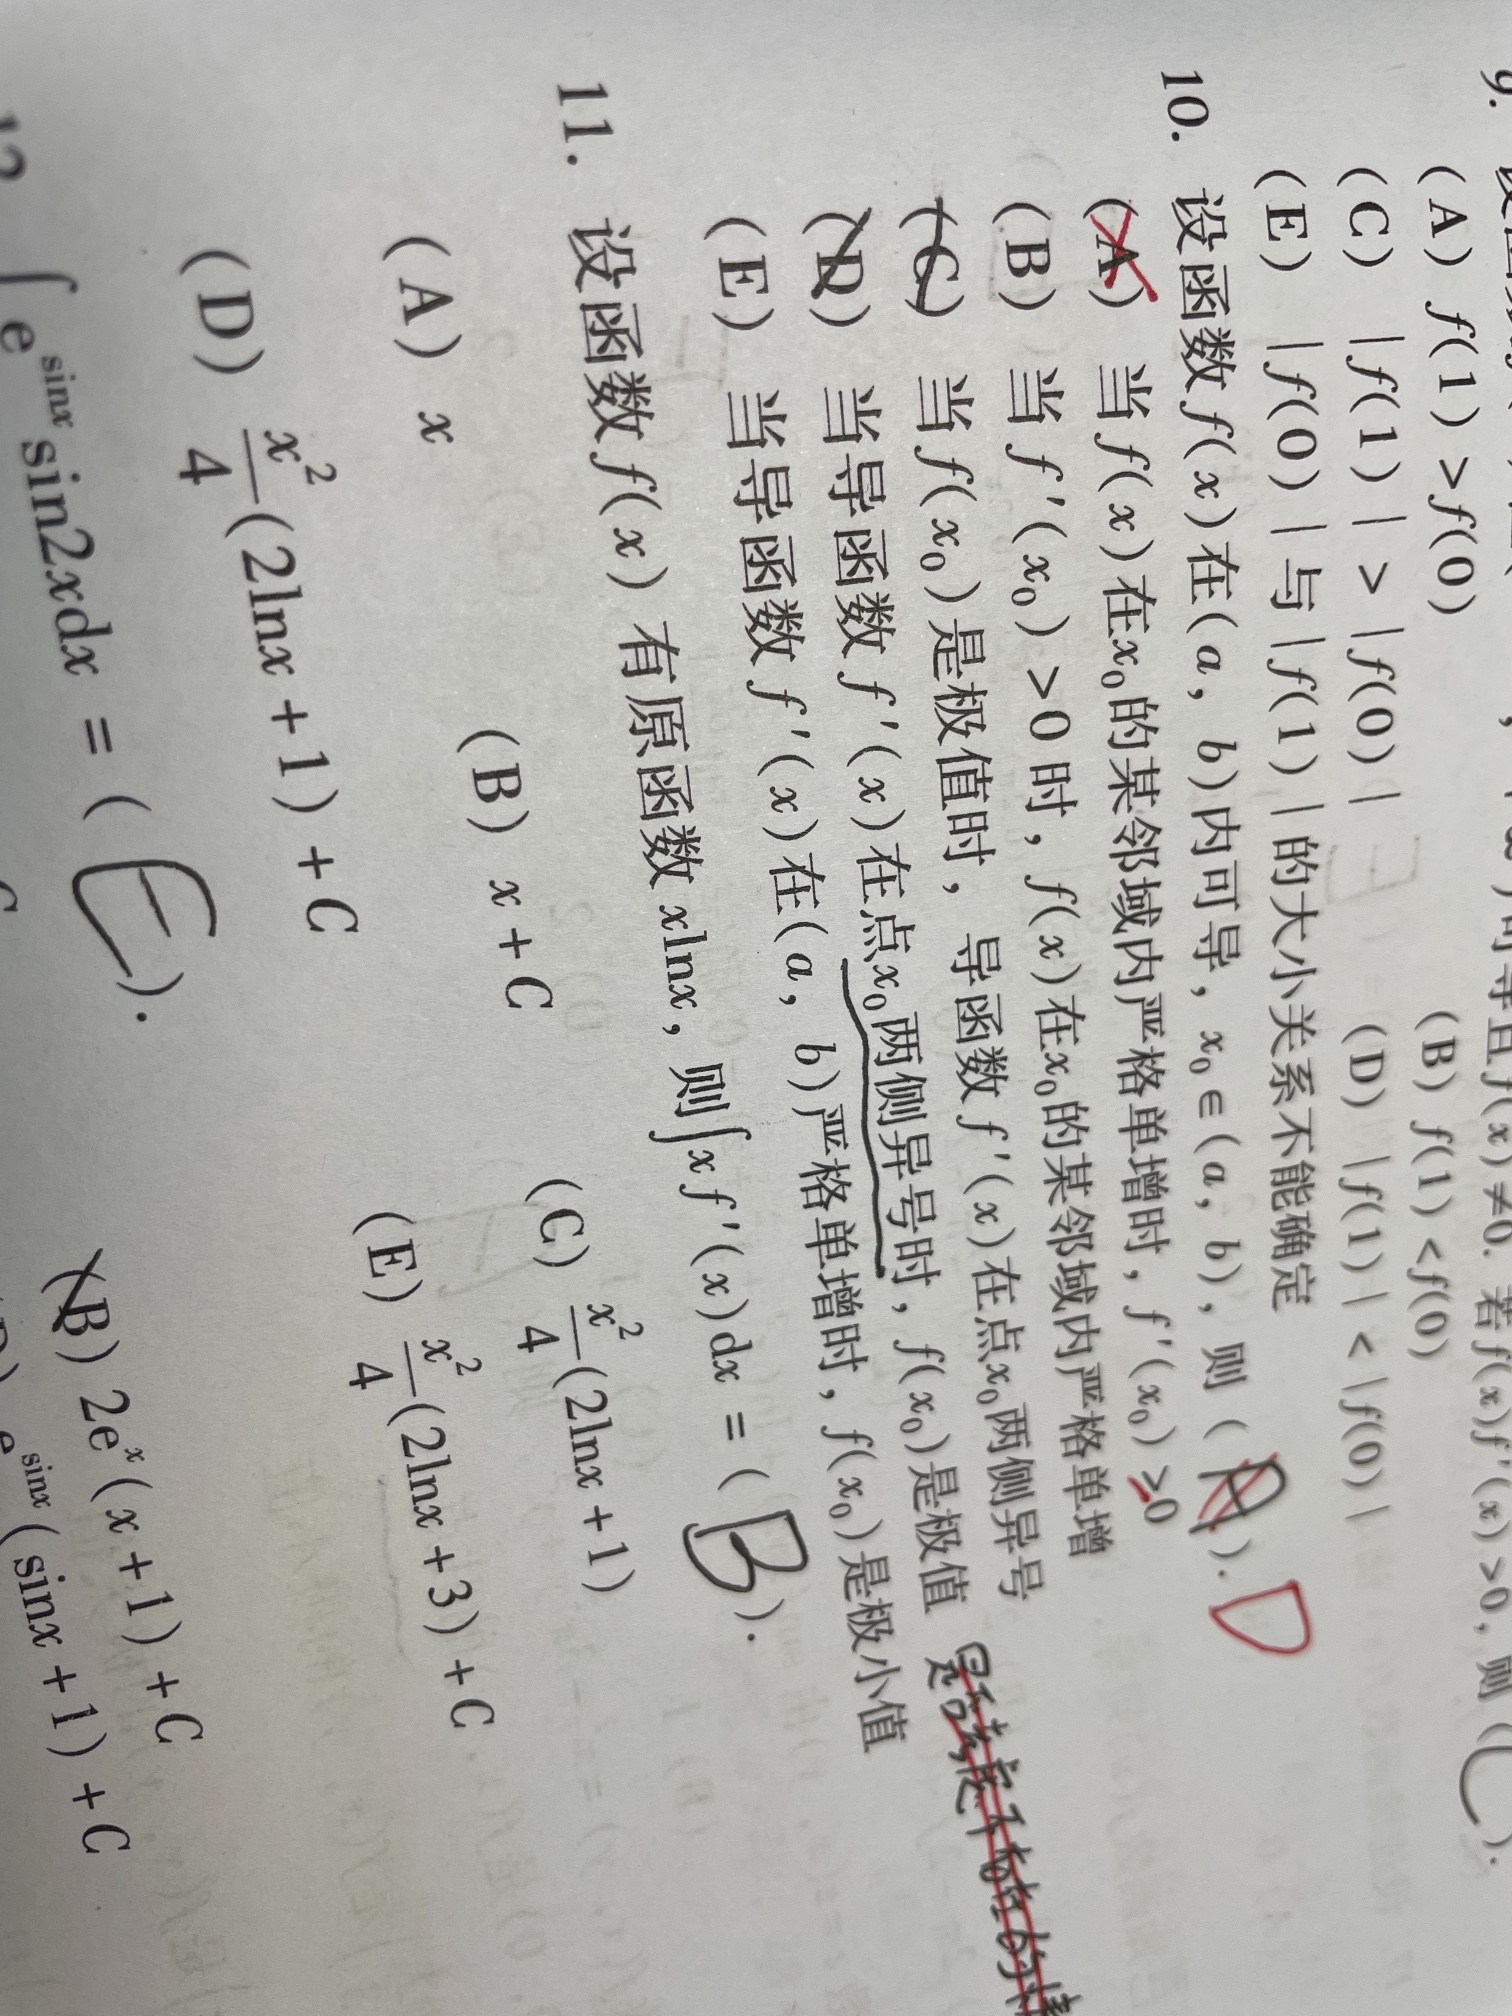 9.
可导且f(x)≠0. 若f(x)f′(x)>0, 则( ).
(A) f(1)>f(0) (B) f(1)<f(0)
(C) |f(1)|>|f(0)| (D) |f(1)|<|f(0)|
(E) |f(0)|与|f(1)|的大小关系不能确定
10. 设函数f(x)在(a, b)内可导, x₀∈(a, b), 则( A ). D
(A) 当f(x)在x₀的某邻域内严格单增时, f′(x₀)>0
(B) 当f′(x₀)>0时, f(x)在x₀的某邻域内严格单增
(C) 当f(x₀)是极值时, 导函数f′(x)在点x₀两侧异号
(D) 当导函数f′(x)在点x₀两侧异号时, f(x₀)是极值
(E) 当导函数f′(x)在(a, b)严格单增时, f(x₀)是极小值
11. 设函数f(x)有原函数xlnx, 则∫xf′(x)dx=( B ).
(A) x (B) x+C (C) x²/4(2lnx+1)
(D) x²/4(2lnx+1)+C (E) x²/4(2lnx+3)+C
12 ∫e^sinx sin2xdx=( E ).
(B) 2eˣ(x+1)+C
e^sinx(sinx+1)+C